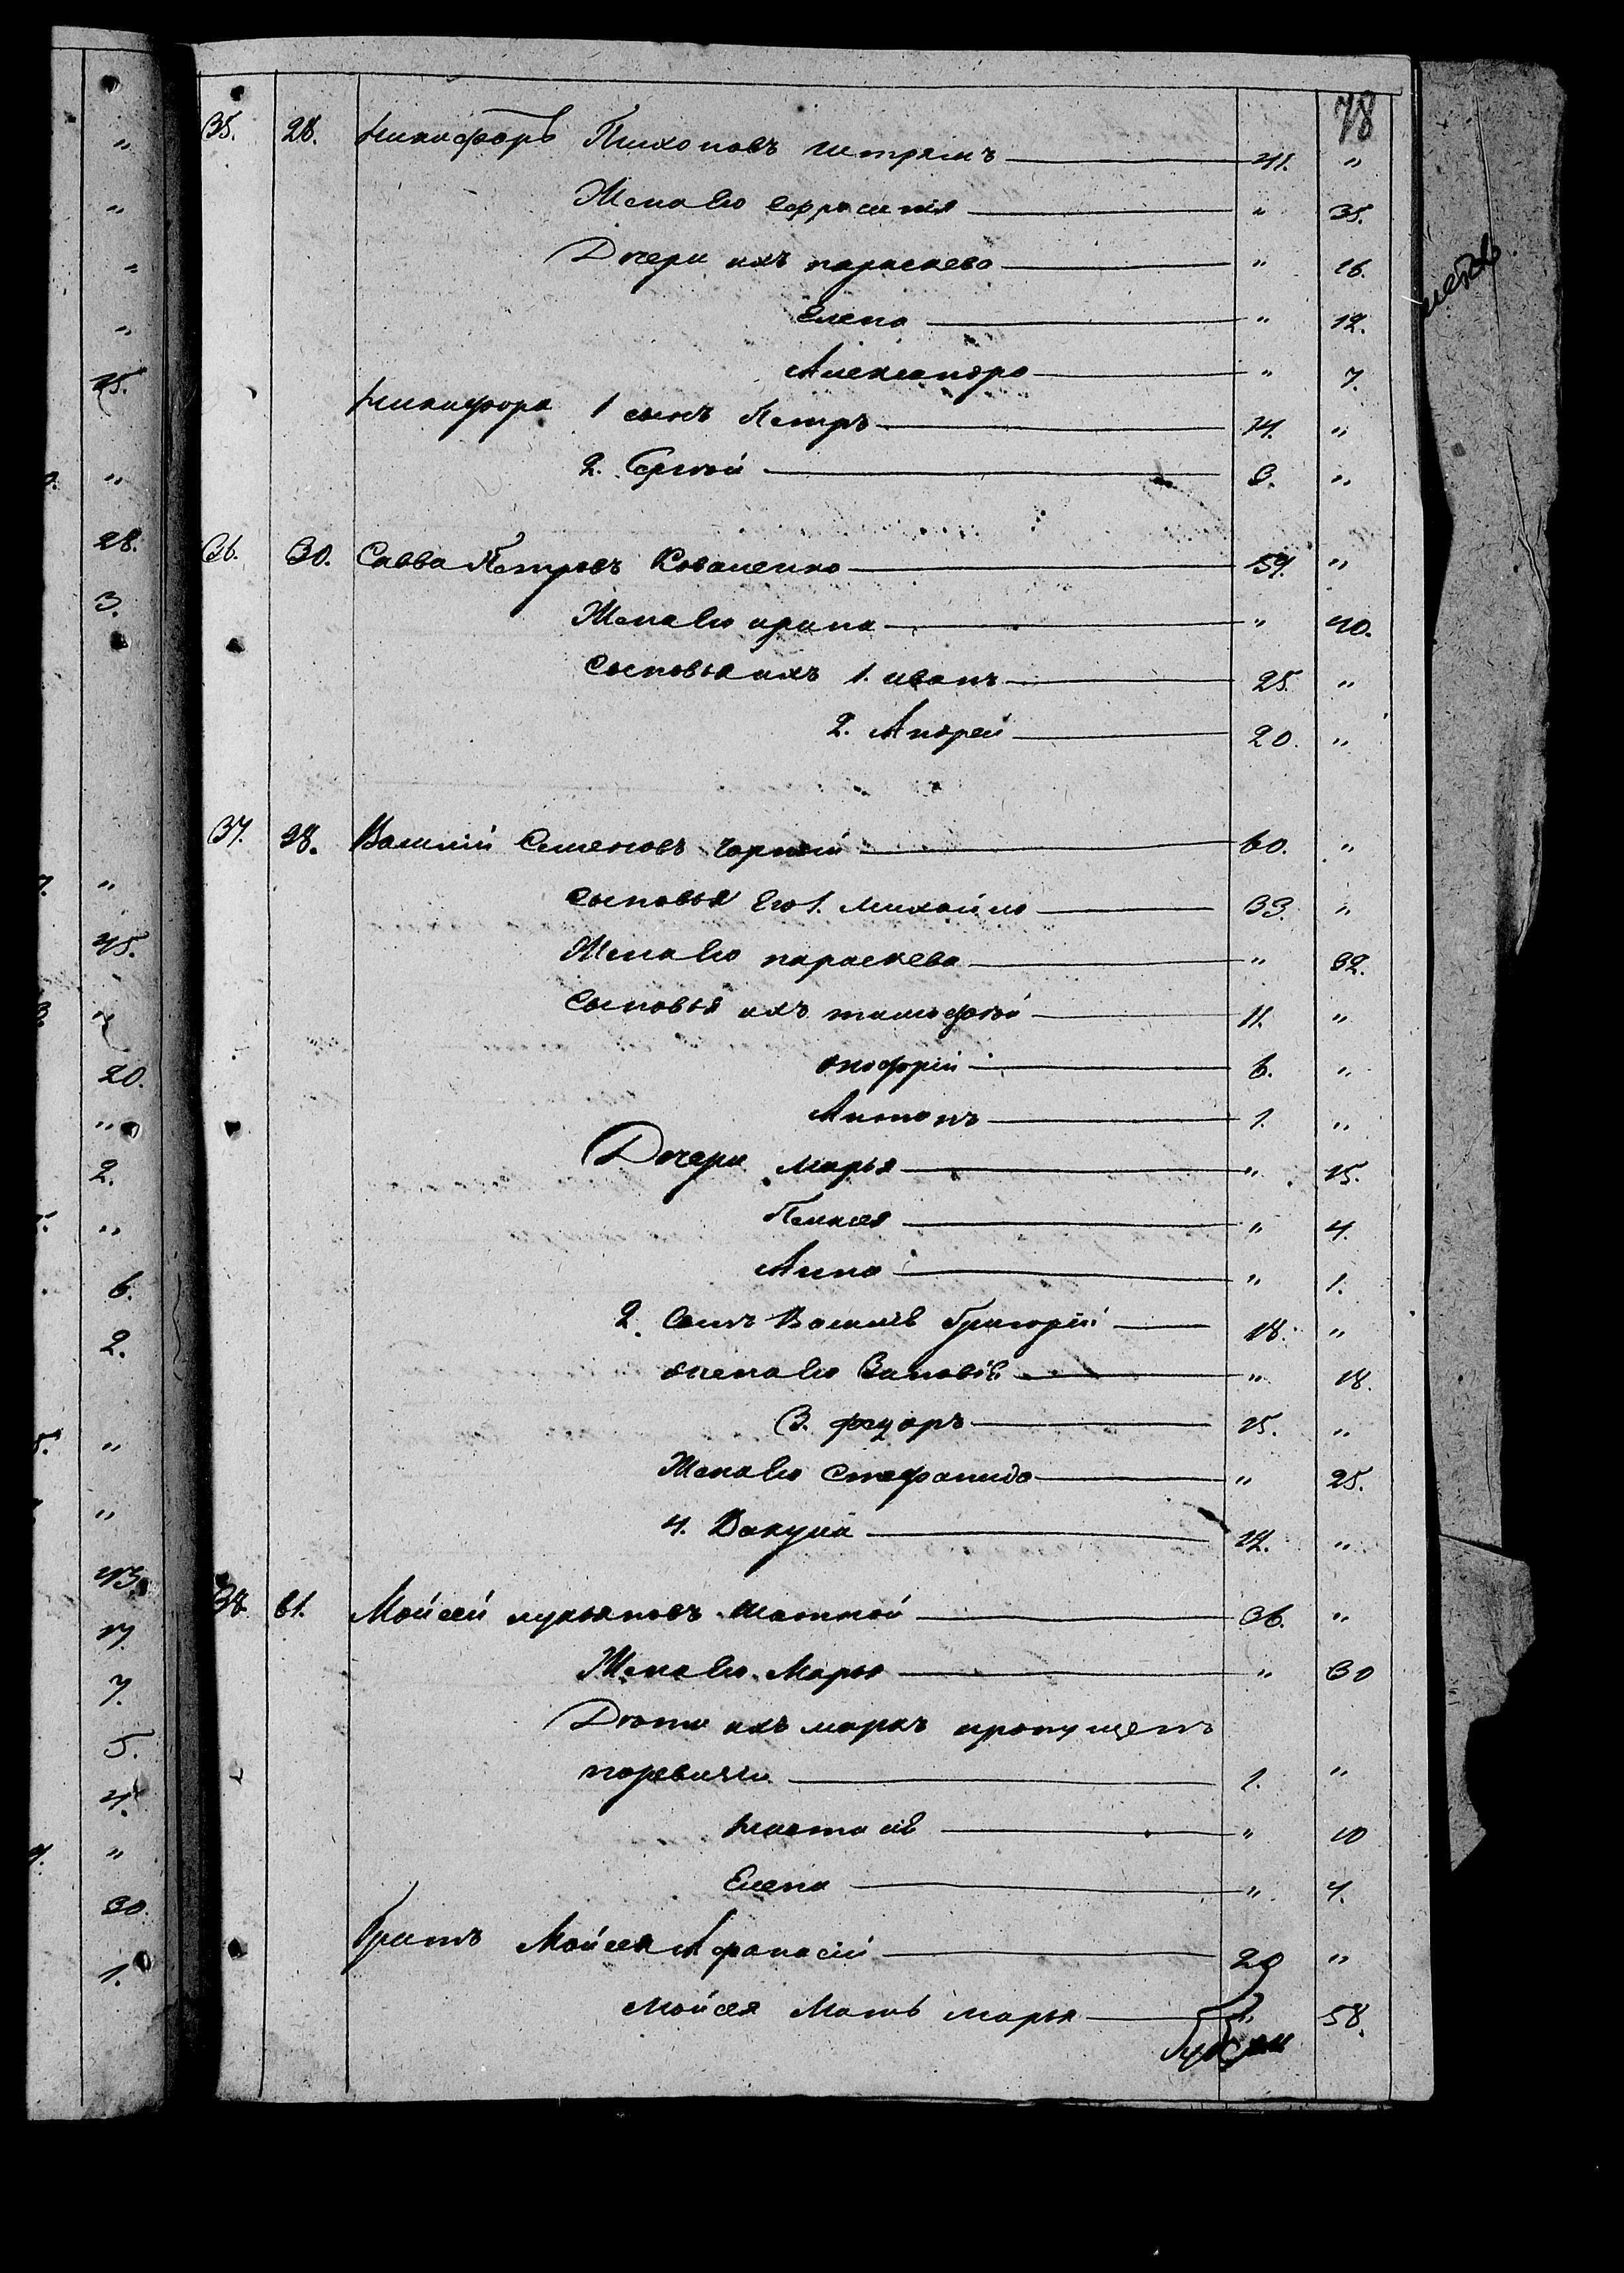 78
35. 28. Никифоръ Тихоновъ 41. "
Жена Его Ефросинія " 35.
Дочери ихъ параскева " 16.
Елена " 12.
Александра " 7.
Никифора 1 сынъ Петръ 14. "
2. Сергѣй 3. "
36. 30. Савва Петровъ Коваленко 59. "
Жена Его ирина " 40.
Сыновья ихъ 1. иванъ 25. "
2. Андрей 20. "
37. 38. Василій Семеновъ Чорный 60. "
Сыновья Его 1. михайло 33. "
Жена Его параскева " 32.
Сыновья ихъ тимофѣй 11. "
онофрій 6. "
Антонъ 1. "
Дочери марья " 15.
" 4.
Анна " 1.
2. Сынъ Василія Григорій 18. "
жена Его Зиновія " 18.
3. 25. "
Жена Его Стефанида " 25.
4. Вакула 12. "
38. 61. Мойсей лукьяновъ 36. "
Жена Его Марья " 30
Дѣти ихъ марко пропущенъ
1. "
настасія " 10
Елена " 4.
Братъ Мойсея Афанасій 20 "
Мойсея Мать марья " 58.
25.
"
28.
3.
"
45.
20.
"
2.
"
6.
2.
"
"
43.
17.
7.
5.
4.
"
30.
1.